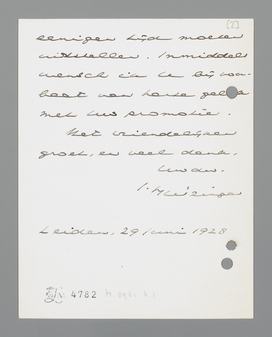 [2]
eenigen tijd moeten
uitstellen. Inmiddels
wensch ik U bij voor-
baat van harte geluk
met Uw promotie.
Met vriendelijken
groet, en veel dank,
Uw dw.
J. Huizinga
Leiden, 29 Juni 1928
4782